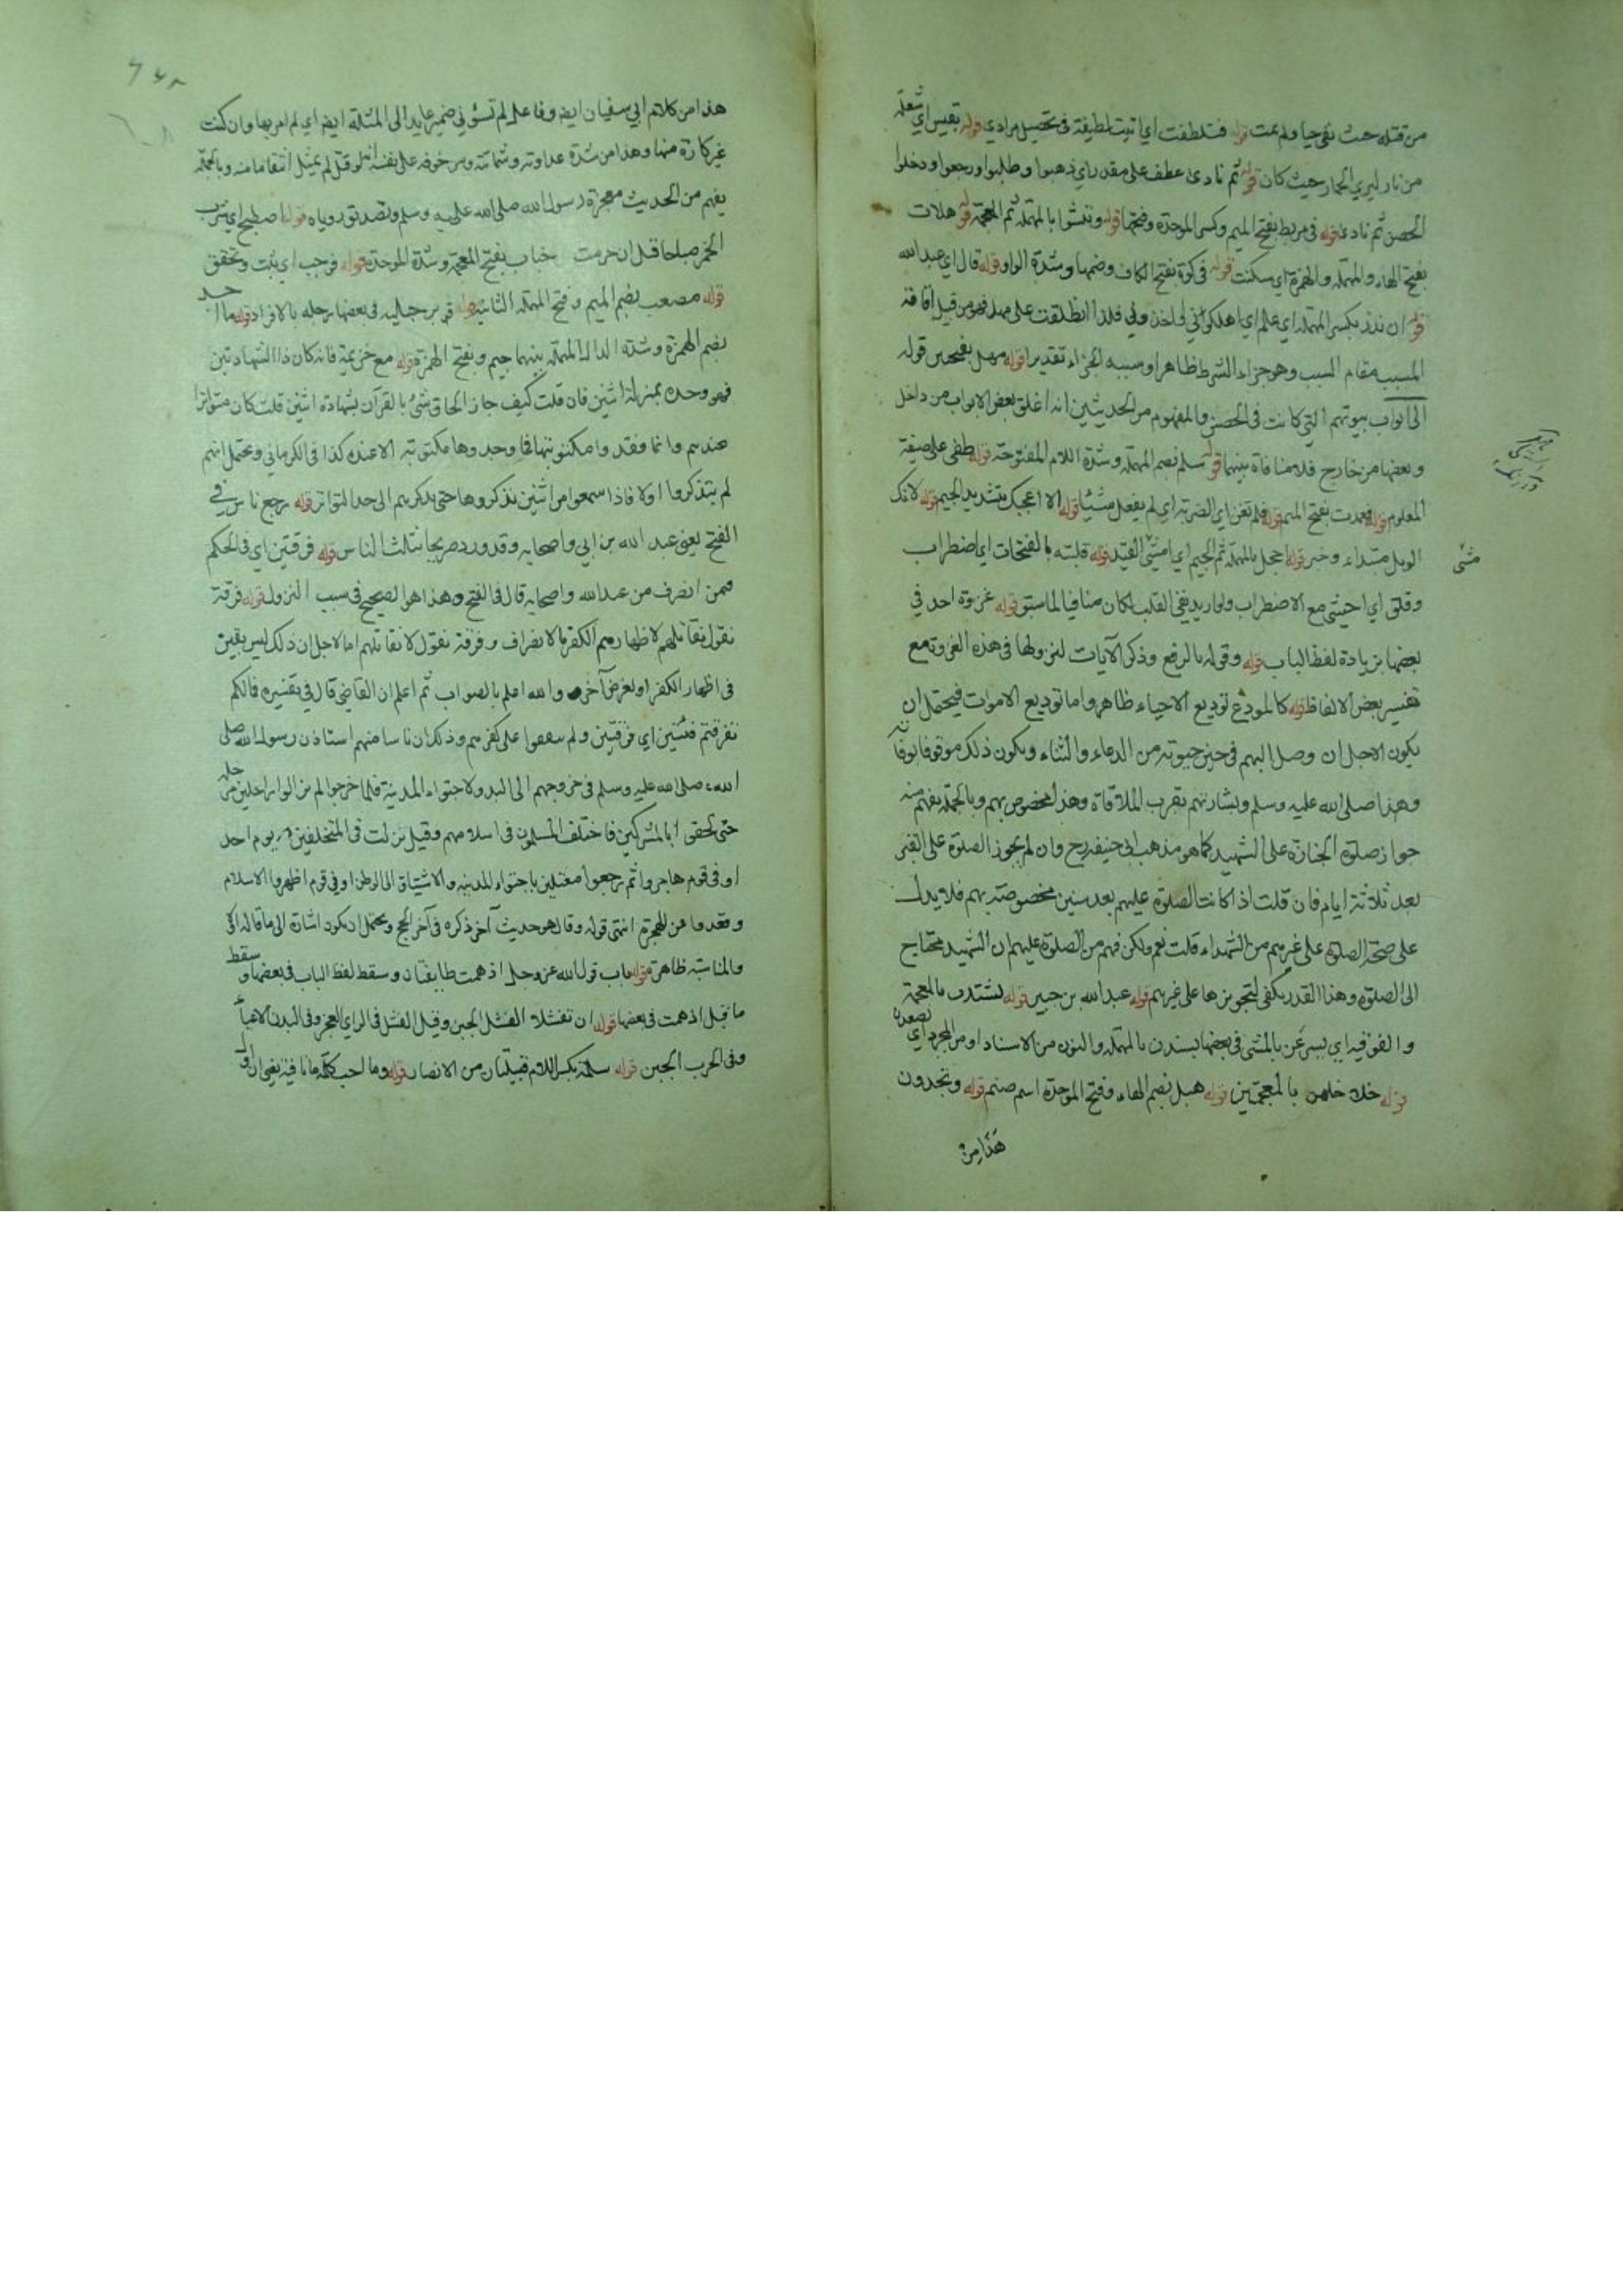 من قتله حيث بقي حيا ولم يمت قوله فتلطفت اي اتيت لطيفة في تحصيل مرادي قوله بقبس اي شعلة
من نار ليري الحمار حيث كان قوله ثم نادى عطف على مقدر اي ذهبوا وطلبوا ورجعوا ودخلوا
الحصن ثم نادى قوله في مربط بفتح الميم وكسر الموحدة وفتحها قوله وتغشوا بالمهملة ثم المعجمة قوله هدات
بفتح الهاء والمهملة والهمزة اي سكنت قوله في كوة بفتح الكاف وضمها وشدة الواو قوله قال اي عبد الله
قوله ان نذر بكسر المهملة اي علم اي اهلكوني لاخذ ولي فلذا انطلقت على مهل فهو من قبيل اقامة
المسبب مقام السبب وهو جزاء الشرط ظاهرا وسببه الجزاء تقديرا قوله مهل بفتحتين قوله
الى ابواب بيوتهم التي كانت في الحصن والمفهوم من الحديثين انه اغلق بعض الابواب من داخل
وبعضها من خارج فلا منافاة بينهما قوله سلم بضم المهملة وشدة اللام المفتوحة قوله طفى على صيغة
المعلوم قوله فعمدت بفتح الميم قوله فلم تغن اي الضربة اي لم يفعل شيئا قوله الا اعجبك بتشديد الجيم قوله لامك
الويل مبتداء وخبر قوله احجل بالمهملة ثم الجيم اي امشي القيد قوله قلبته بالفتحات اي اضطراب
وقلق اي احيثي مع الاضطراب ولو اريد نفي القلب لكان منافيا لما سبق قوله غزوة احد في
بعضها بزيادة لفظ الباب قوله وقوله بالرفع وذكر الآيات لنزولها في هذه الغزوة مع
تفسير بعض الالفاظ قوله كالمودع توديع الاحياء ظاهر واما توديع الاموات فيحتمل ان
يكون الاجل ان وصل اليهم في حين حيوته من الدعاء والثناء ويكون ذلك موقوفا بوفاته
وهذا صلى الله عليه وسلم وبشارتهم بقرب الملاقاة وهذا مخصوص بهم وبالجملة يفهم منه
جواز صلوة الجنازة على الشهيد كما هو مذهب ابي حنيفة رح وان لم يجوز الصلوة على القبر
بعد ثلاثة ايام فان قلت اذا كانت الصلوة عليهم بعد سنين مخصوصة بهم فلا يدل
على صحة الصلوة على غيرهم من الشهداء قلت نعم ولكن فهم من الصلوة عليهم ان الشهيد محتاج
الى الصلوة وهذا القدر يكفي لتجويزها على غيرهم قوله عبد الله بن جبير قوله يشتدن بالمعجمة
والفوقية اي يسرعن بالمشي في بعضها يسندن بالمهملة والنون من الاسناد او من المجرد اي يصعدن
قوله خلاخلهن بالمعجمتين قوله هبل بضم الهاء وفتح الموحدة اسم صنم قوله وتجدون
هذا من
مثى
هذا من كلام ابي سفيان ايضا وفاعل لم تسؤني ضمير عايد الى المثلة ايضا اي لم امر بها وان كنت
غير كارة منها وهذا من شدة عداوته وشماتته ومن خوفه على نفسه انه لو قتل لم يمثل انتقاما منه وبالجملة
يفهم من الحديث معجزة رسول الله صلى الله عليه وسلم وتصديق روياه قوله اصطبح اي شرب
الخمر صباحا قبل ان حرمت خباب بفتح المعجمة وشدة الموحدة قوله فوجب اي يثبت وتحقق
قوله مصعب بضم الميم وفتح المهملة الثانية قوله رجليه في بعضها رجله بالافراد قوله ما احد
بضم الهمزة وشدة الدال المهملة بينهما جيم وبفتح الهمزة قوله مع خزيمة فانه كان ذا الشهادتين
فهو وحده بمنزلة اثنين فان قلت كيف جاز الحاق شئ بالقرآن بشهادة اثنين قلت كان متواترا
عندهم وانما فقدوا مكتوبتها فما وجدوها مكتوبة الا عنده كذا في الكرماني ويحتمل انهم
لم يتذكروا اولا فاذا سمعوا من اثنين تذكروها حتى بلغ ذكرهم الى حد التواتر قوله رجع ناس في
الفتح يعني عبد الله بن ابي واصحابه وقد ورد صريحا بثلث الناس قوله فرقتين اي في الحكم
فيمن انصرف من عبد الله واصحابه قال في الفتح وهذا هو الصحيح في سبب النزول قوله فرقة
تقول نقاتلهم لاظهارهم الكفر بالانصراف وفرقة تقول لا نقاتلهم اما لاجل ان ذلك ليس بيقين
في اظهار الكفر او لغرض آخر والله اعلم بالصواب ثم اعلم ان القاضي قال في تفسيره فما لكم
تفرقتم فئتين اي فرقتين ولم تتفقوا على كفرهم وذلك ان ناسا منهم استاذن رسول الله صلى
الله صلى الله عليه وسلم في خروجهم الى البدو لاجتواء المدينة فلما خرجوا لم يزالوا راحلين مرحلة
حتى لحقوا بالمشركين فاختلف المسلمون في اسلامهم وقيل نزلت في المتخلفين يوم احد
او في قوم هاجروا ثم رجعوا معتلين باجتواء المدينة والاشتياق الى الوطن او في قوم اظهروا الاسلام
وقعدوا عن الهجرة انتهى قوله وقال هو حديث آخر ذكره في آخر الحج ويحتمل ان يكون اشارة الى ما قاله
والمناسبة ظاهرة قوله باب قول الله عز وجل اذ همت طايفتان وسقط لفظ الباب في بعضها وسقط
ما قبل اذ همت في بعضها قوله ان تفشلا الفشل الجبن وقيل الفشل في الراي العجز وفي البدن الاعياء
وفي الحرب الجبن قوله سلمة بكسر اللام قبيلتان من الانصار قوله وما احب كلمة ما نافية يعني ان